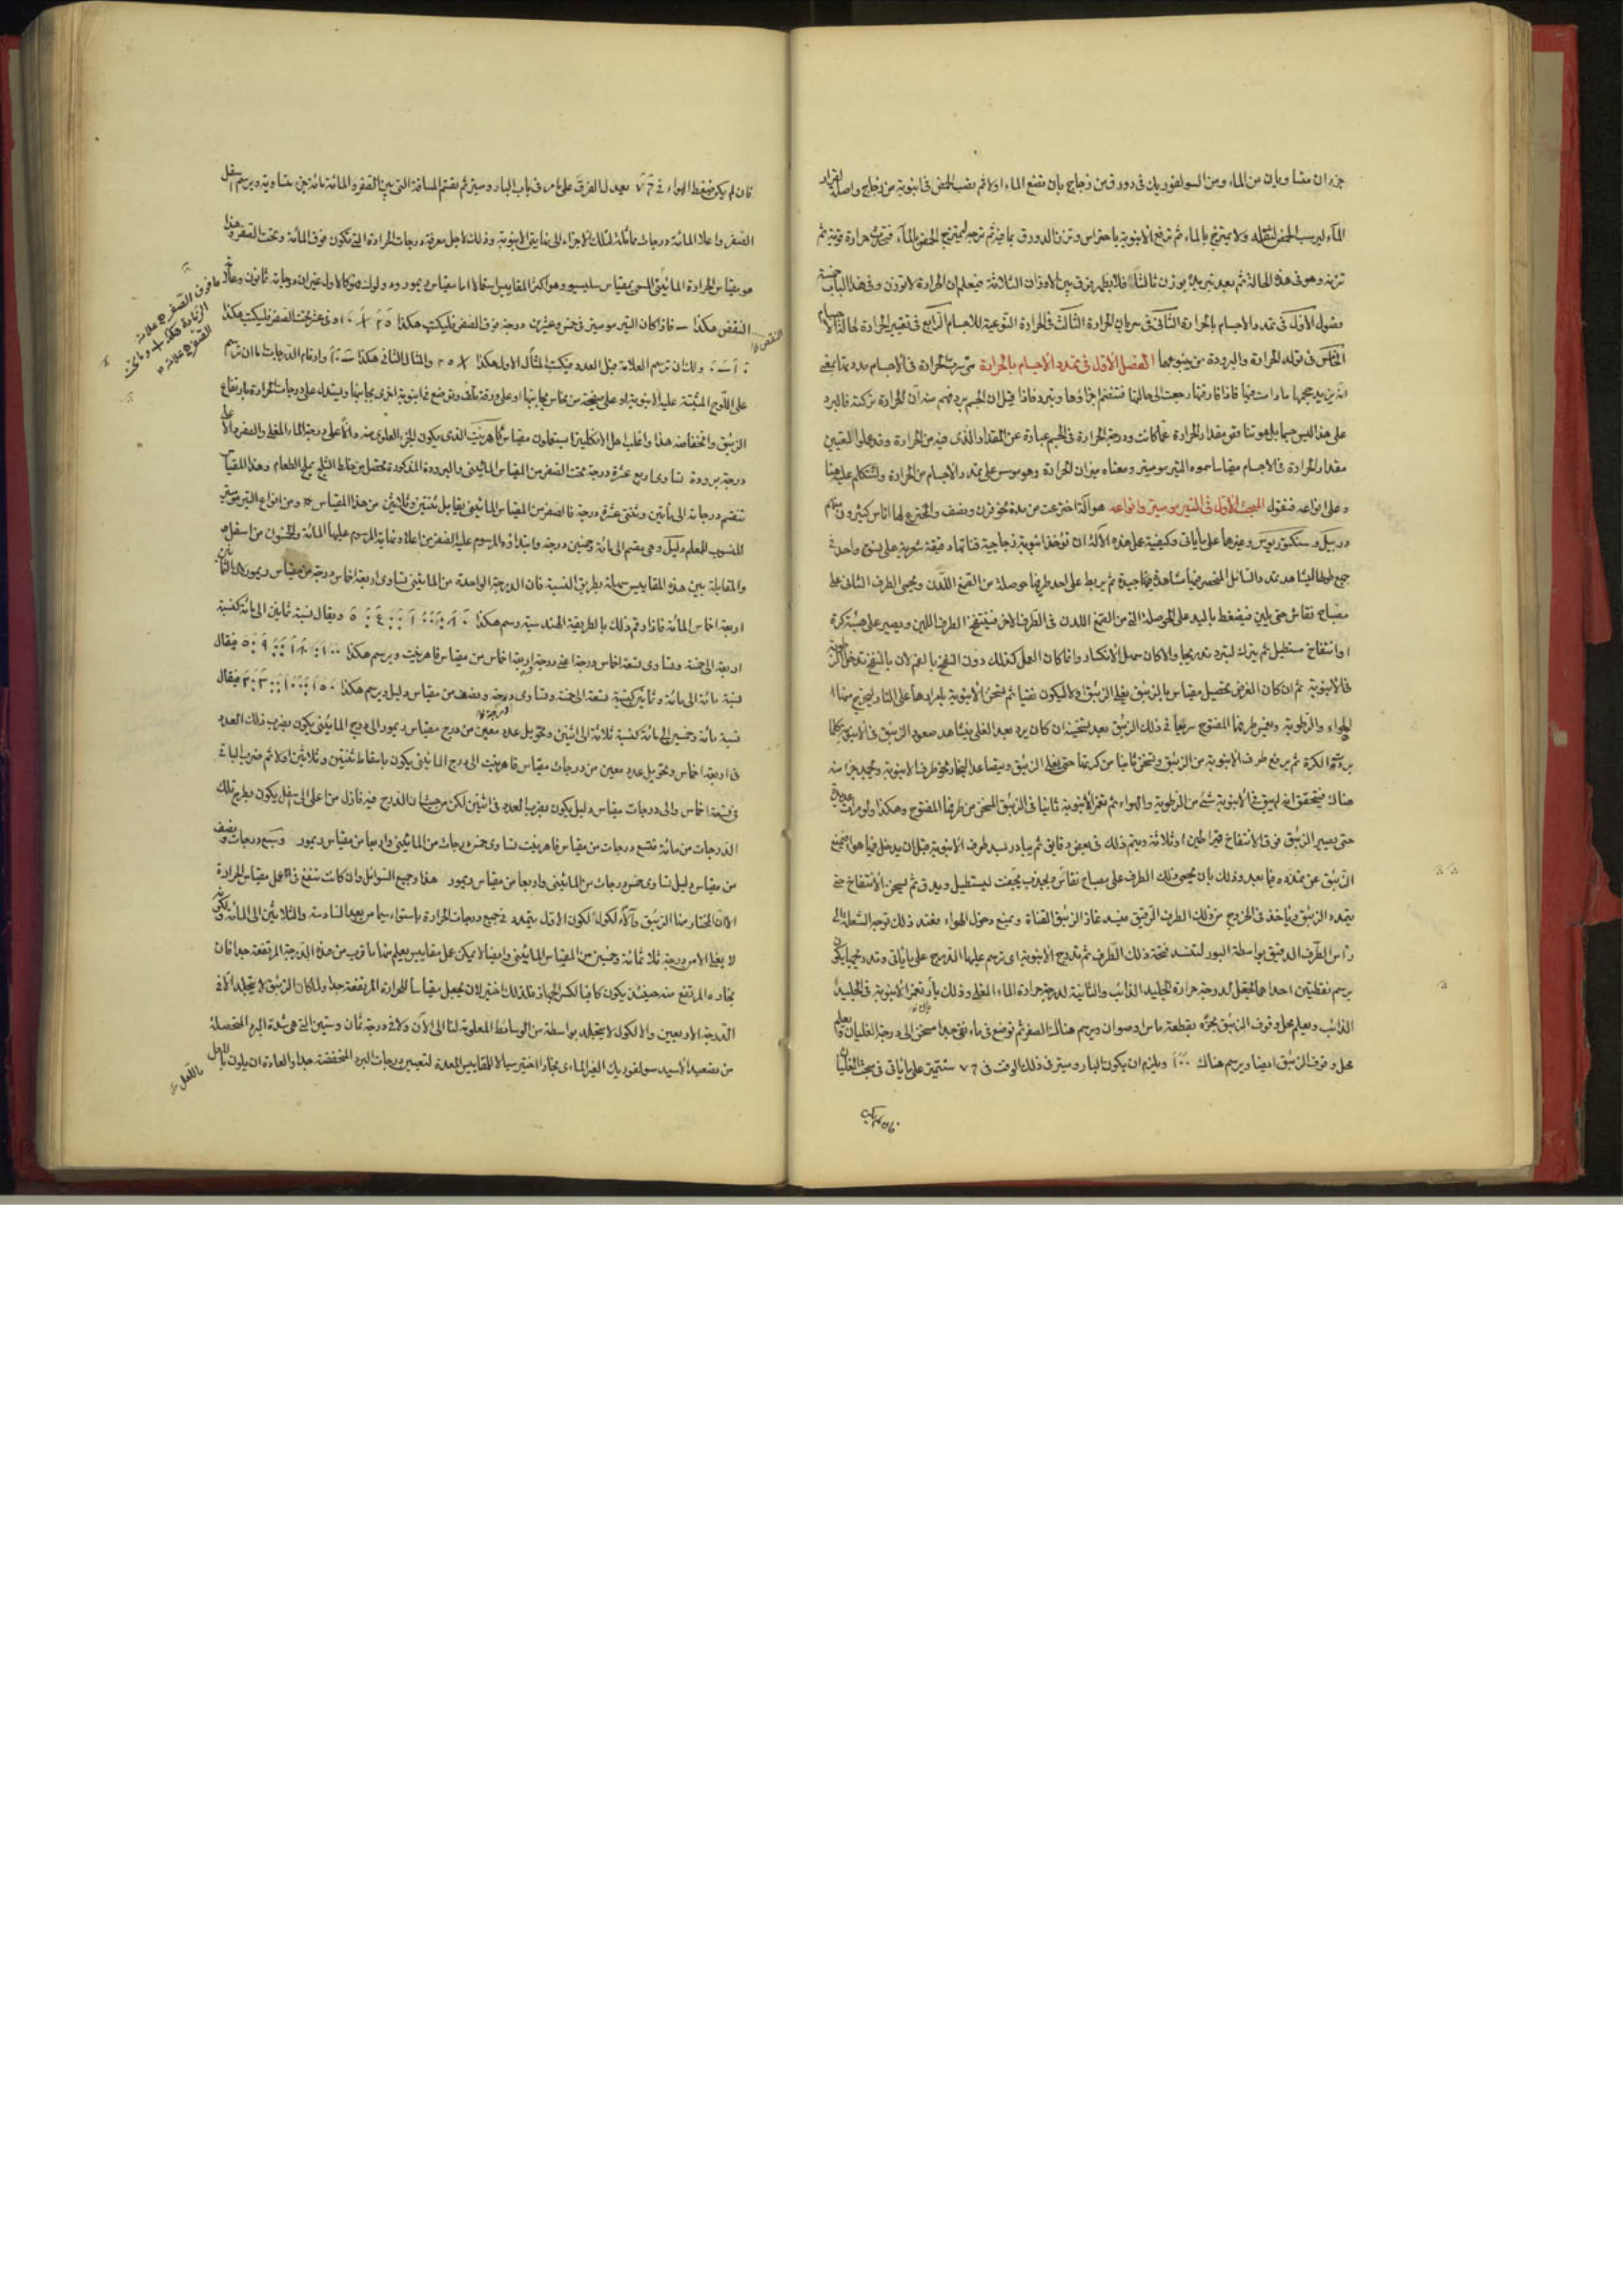 جزءان متساويان من الماء ومن السولفوريك في دورق من زجاج بان تضع الماء اولا ثم يصب الحمض في انبوبة من زجاج واصلة لقرار
الماء ليرسب الحمض لثقله ولا يمتزج بالماء ثم ترفع الانبوبة باحتراس وتزن الدورق بما فيه ثم ترجه ليمتزج الحمض بالماء فتحدث حرارة قوية ثم
تزنه وهو في هذه الحالة ثم بعد تبريده يوزن ثالثا فلا يظهر فرق بين الاوزان الثلاثة فيعلم ان الحرارة لا توزن وفي هذا الباب خمسة
فصول الاول في تمدد الاجسام بالحرارة الثاني في سريان الحرارة الثالث في الحرارة النوعية للاجسام الرابع في تغيير الحرارة لحالة الاجسام
الخامس في تولد الحرارة والبرودة من ينبوعهما الفصل الاول في تمدد الاجسام بالحرارة متى سرت الحرارة في الاجسام مددتها بمعنى
انه يزيد حجمها ما دامت فيها فاذا فارقتها رجعت الى حالها فتنضم اجزاؤها وتبرد فاذا قيل ان الجسم برد فهم منه ان الحرارة تركته فالبرد
على هذا ليس جسما بل هو تناقص مقدار الحرارة عما كانت ودرجة الحرارة في الجسم عبارة عن المقدار الذي فيه من الحرارة وقد جعلوا لتعيين
مقدار الحرارة في الاجسام مقياسا سموه التيرموميتر ومعناه ميزان الحرارة وهو مؤسس على تمدد الاجسام من الحرارة ولنتكلم عليه هنا
وعلى انواعه فنقول المبحث الاول في التيرموميتر وانواعه هو آلة اخترعت من مدة نحو قرن ونصف والمخترع لها اناس كثيرون منهم
دربيل وسنكتوريوس وغيرها على ما ياتي وكيفية عمل هذه الآلة ان تؤخذ انبوبة زجاجية قناتها دقيقة شعرية على نسق واحد في
جميع طولها ليشاهد تمدد السائل المنحصر فيها مشاهدة جيدة ثم يربط على احد طرفيها حوصلة من الصمغ اللدن ويحمى الطرف الثاني على
مصباح نقاش حتى يلين فيضغط باليد على الحوصلة التي من الصمغ اللدن في الطرف الاخر فينتفخ الطرف اللين ويصير على هيئة كرة
او انتفاخ مستطيل ثم يترك ليبرد تدريجا والا كان سهل الانكسار واذا كان العمل كذلك دون النفخ بالفم لان بالنفخ تدخل الرطوبة
في الانبوبة ثم ان كان الغرض تحصيل مقياس بالزيبق يغلى الزيبق اولا ليكون نقيا ثم تسخن الانبوبة بامرارها على النار ليخرج منها
الهواء والرطوبة ويغمر طرفها المفتوح سريعا في ذلك الزيبق بعد تسخينه ان كان برد بعد الغلي فيشاهد صعود الزيبق في الانبوبة كلما
بردت الكرة ثم يرفع طرف الانبوبة من الزيبق وتسخن ثانيا من كرتها حتى يغلي الزيبق ويتصاعد البخار نحو طرف الانبوبة ويجذب جزا منه
هناك فيتحقق انه لم يبق في الانبوبة شئ من الرطوبة والهواء ثم تغمر الانبوبة ثانيا في الزيبق المسخن من طرفها المفتوح وهكذا ولو مرات عديدة
حتى يصير الزيبق فوق الانتفاخ قيراطين او ثلاثة ويتم ذلك في بعض دقايق ثم يبادر بسد طرف الانبوبة قبل ان يدخل فيها هواء فيمنع
الزيبق عن تمدده فيما بعد وذلك بان يحمى ذلك الطرف على مصباح نقاش ويجذب بحيث ليستطيل ويدق ثم يسخن الانتفاخ حتى
يتمدد الزيبق وياخذ في الخروج من ذلك الطرف الرقيق فيسد غاز الزيبق القناة ويمنع دخول الهواء فعند ذلك توجه الشعلة الى
راس الطرف الدقيق بواسطة البوري لتنسد فتحة ذلك الطرف ثم تدرج الانبوبة اي ترسم عليها الدرج على ما ياتي وتدريجها يكون
برسم نقطتين احداهما تجعل لدرجة حرارة الجليد الذائب والثانية لدرجة حرارة الماء المغلي وذلك بان تغمر الانبوبة في الجليد
الذائب ويعلم محل وقوف الزيبق بحزه بقطعة ماس او صوان ويرسم هناك الصفر ثم توضع في ماء نقي جدا مسخن الى درجة الغليان ويعلم
محل وقوف الزيبق ايضا ويرسم هناك ١٠٠ ويلزم ان يكون البارومتر في ذلك الوقت في ٧٦ سنتميتر على ما ياتي في مبحث الغليان
فان لم يكن
فان لم يكن ضغط الهواء في ٧٦ يعدل الفرق على ما مر في باب البارومتر ثم تقسم المسافة التي بين الصفر والمائة مائة جزء متساوية ويرسم اسفل
الصفر واعلا المائة درجات مماثلة لتلك الاجزاء الى نهايتي الانبوبة وذلك لاجل معرفة درجات الحرارة التي تكون فوق المائة وتحت الصفر وهذا
هو مقياس الحرارة المائيني المسمى بمقياس سلسيوس وهو اكثر المقاييس استعمالا اما مقياس ريمور وديلوك فهو كالاول غير ان درجاته ثمانون وعلامة
النقص هكذا — فاذا كان التيرموميتر في خمس وعشرين درجة فوق الصفر فليكتب هكذا ٢٥ + ٠ او في عشر تحت الصفر فليكتب هكذا
١٠ — ٠ ولك ان ترسم العلامة قبل العدد فيكتب المثال الاول هكذا + ٢٥ والمثال الثاني هكذا — ١٠ وارقام الدرجات اما ان ترسم
على اللوح المثبتة عليه الانبوبة او على صفيحة من نحاس بجانبها او على ورقة تلف وتوضع في انبوبة اخرى بجانبها ويستدل على درجات الحرارة بارتفاع
الزيبق وانخفاضه هذا واغلب اهل الانكليترا يستعملون مقياس فاهرنهيت الذي يكون الجزء العلوي منه دالا على درجة الماء المغلي والصفر دالا على
درجة برودة تساوي اربع عشرة درجة تحت الصفر من المقياس المائيني والبرودة المذكورة تحصل من خلط الثلج بملح الطعام وهذا المقياس
تنقسم درجاته الى مأتين وثنتي عشرة درجة فالصفر من المقياس المائيني يقابل ثنتين وثلاثين من هذا المقياس ومن انواع التيرموميتر
المنسوب للمعلم دليل وهي يقسم الى مائة وخمسين درجة وابتداؤه المرسوم عليه الصفر من اعلاه ونهايته المرسوم عليها المائة والخمسون من اسفل
والمقابلة بين هذه المقاييس سهلة بطريق النسبة فان الدرجة الواحدة من المائيني تساوي اربعة اخماس درجة من مقياس ريمور
اربعة اخماس المائة فاذا رقم ذلك بالطريقة الهندسية رسم هكذا ٨٠ : ١٠٠ :: ٤ : ٥ ويقال نسبة ثمانين الى مائة كنسبة
اربعة الى خمسة وتساوي تسعة اخماس درجة اي درجة واربعة اخماس من مقياس فاهرنهيت ويرسم هكذا ١٨٠ : ١٠٠ :: ٩ : ٥ فيقال
نسبة مائة وثمانين الى مائة كنسبة تسعة الى خمسة وتساوي درجة ونصف من مقياس دليل ويرسم هكذا ١٥٠ : ١٠٠ :: ٣ : ٢ فيقال
نسبة مائة وخمسين الى مائة كنسبة ثلاثة الى اثنين وتحويل عدد معين من درج مقياس ريمور الى درج المائيني يكون بضرب ذلك العدد
في اربعة اخماس وتحويل عدد معين من درجات مقياس فاهرنهيت الى درج المائيني يكون باسقاط ثنتين وثلاثين اولا ثم ضرب الباقي
في تسعة اخماس والى درجات مقياس دليل يكون بضرب العدد في اثنين لكن من حيث ان الدرج فيه نازل من اعلى الى اسفل يكون بطرح تلك
الدرجات من مائة فتسع درجات من مقياس فاهرنهيت تساوي خمس درجات من المائيني واربعا من مقياس ريمور وسبع درجات ونصف
من مقياس دليل تساوي خمس درجات من المائيني واربعا من مقياس ريمور هذا وجميع السوائل وان كانت تنفع في عمل مقياس الحرارة
الا ان المختار منها الزيبق والالكول لكون الاول يتمدد في جميع درجات الحرارة باستواء سيما من بعد السادسة والثلاثين الى المائة ولكن
لا يغلي الا في درجة ثلاثمائة وخمسين من المقياس المائيني وايضا لا يمكن عمل مقاييس يعلم منها ما قرب من هذه الدرجة المرتفعة جدا فان
بخاره المرتفع منه حينئذ يكون كافيا لكسر الجهاز فلذلك اختير لان يجعل مقياسا للحرارة المرتفعة جدا ولما كان الزيبق لا يتجلد الا في
الدرجة الاربعين والالكول لا يتجلد بواسطة من الوسائط المعلومة لنا الى الآن ولا في درجة ثمان وستين التي هي شدة البرد المتحصلة
من تصعيد الاسيد سولفوريك الغير المائي بخارا اختير سيالا للمقاييس المعدة لتعيين درجات البرد المنخفضة جدا والعادة ان يلون
ما فوق الصفر علامة
الزيادة هكذا + وما تحت
الصفر علامة
النقص